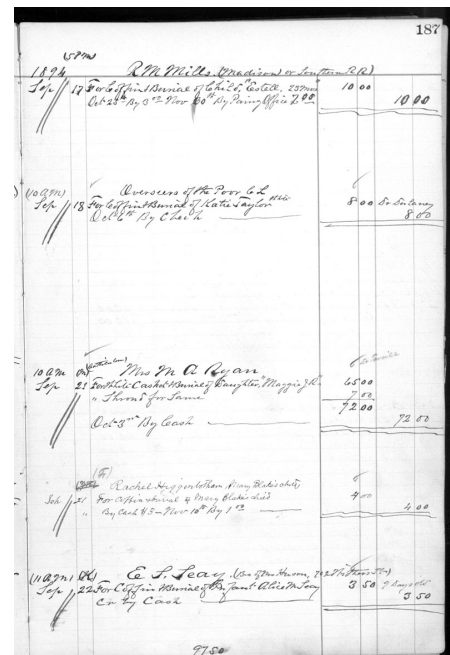 187
(5 P M)
1894 R. M. Mills. (Madison) or Southern R R)
Sep 17 For Coffin & Burial of Child, "Estell. 10 00
Oct 23rd By 3 00 Nov 30th By Paing Office 7 00 10 00
(10 a m) Overseers of the Poor
Sep 18 For Coffin & Burial of Katie Taylor 8 00
Oct 6th By Check 8 00
10 a m Mrs M A Ryan
Sep 21 For White Casket & Burial of Daughter, "Maggie J R" 65 00
" Shroud for Same 7 00
72 00
Oct 3rd By Cash 72 00
Rachel Higgenbotham, Mary Blake's child
21 For Coffin & burial of Mary Blake's child 4 00
" By Cash $3 - Nov 10th By 1 00 4 00
(11 a m) E. S. Seay
Sep 22 For Coffin & Burial of Infant Alice M Seay 3 50 9 Days old
Cr by Cash 3 50
97 50